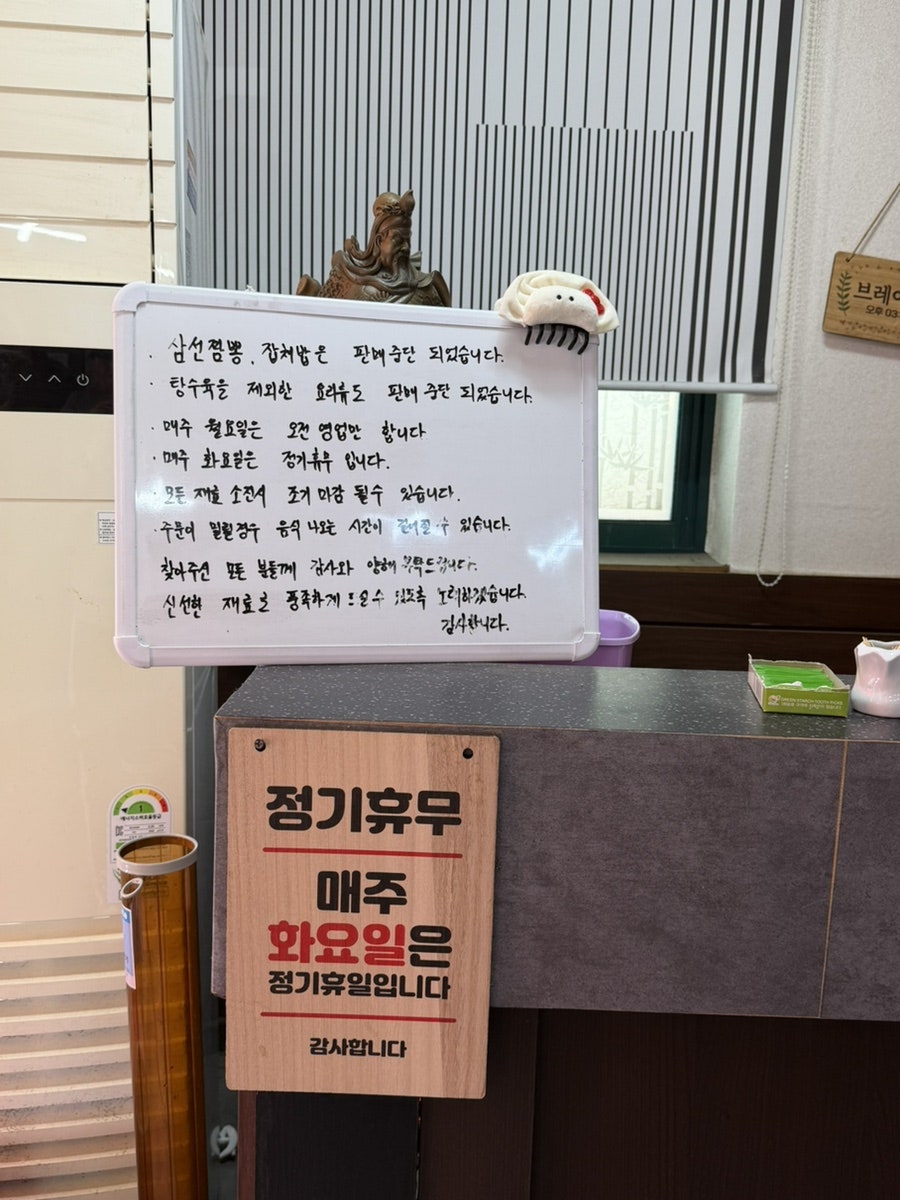 · 삼선짬뽕, 잡채밥은 판매중단 되었습니다.
· 탕수육을 제외한 요리류도 판매중단 되었습니다.
· 매주 월요일은 오전 영업만 합니다
· 매주 화요일은 정기휴무 입니다.
· 모든 재료 소진시 조기 마감 될수 있습니다.
· 주문이 밀릴경우 음식 나오는 시간이 길어질 수 있습니다.
찾아주신 모든 분들께 감사와 양해 부탁드립니다.
신선한 재료로 만족하게 드실수 있도록 노력하겠습니다.
감사합니다.
브레이
오후 03
정기휴무
매주
화요일은
정기휴일입니다
감사합니다